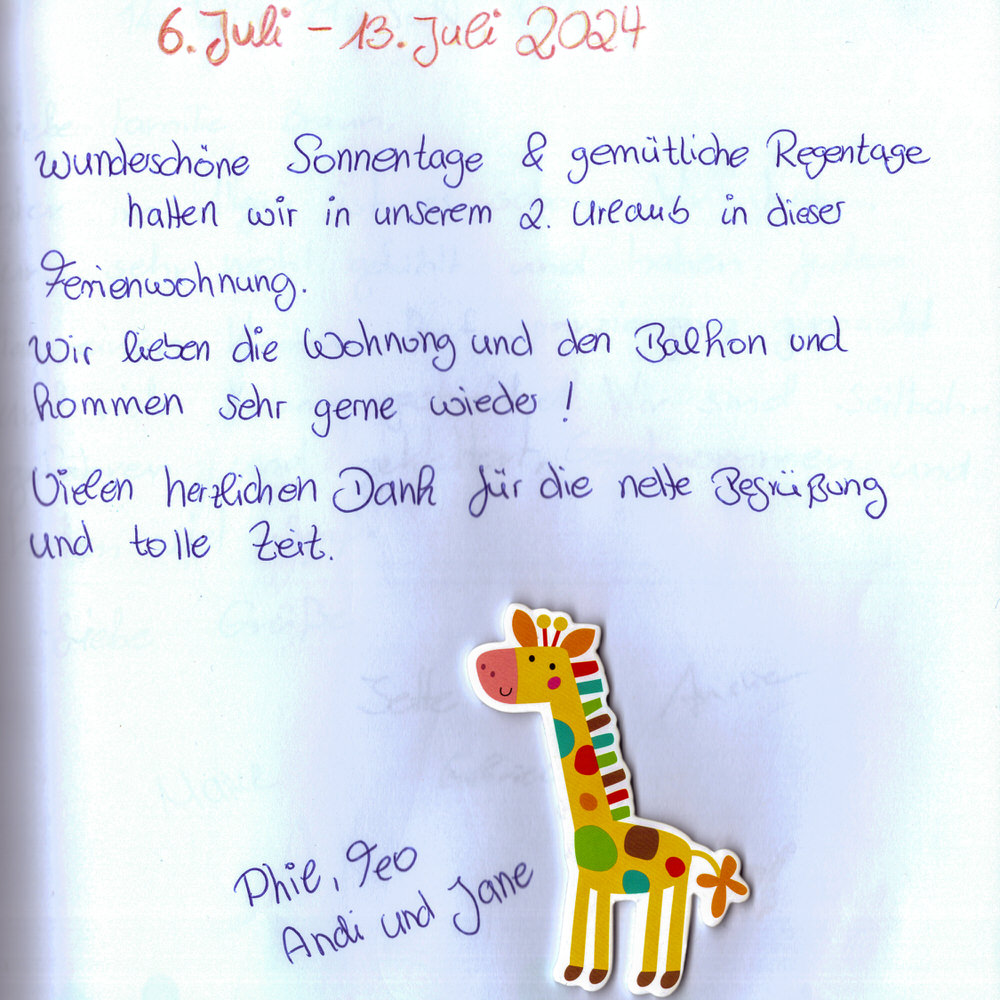 6. Juli - 13. Juli 2024
Wunderschöne Sonnentage & gemütliche Regentage
hatten wir in unserem 2. Urlaub in dieser
Ferienwohnung.
Wir lieben die Wohnung und den Balkon und
kommen sehr gerne wieder !
Vielen herzlichen Dank für die nette Begrüßung
und tolle Zeit.
Phil, Teo
Andi und Jane